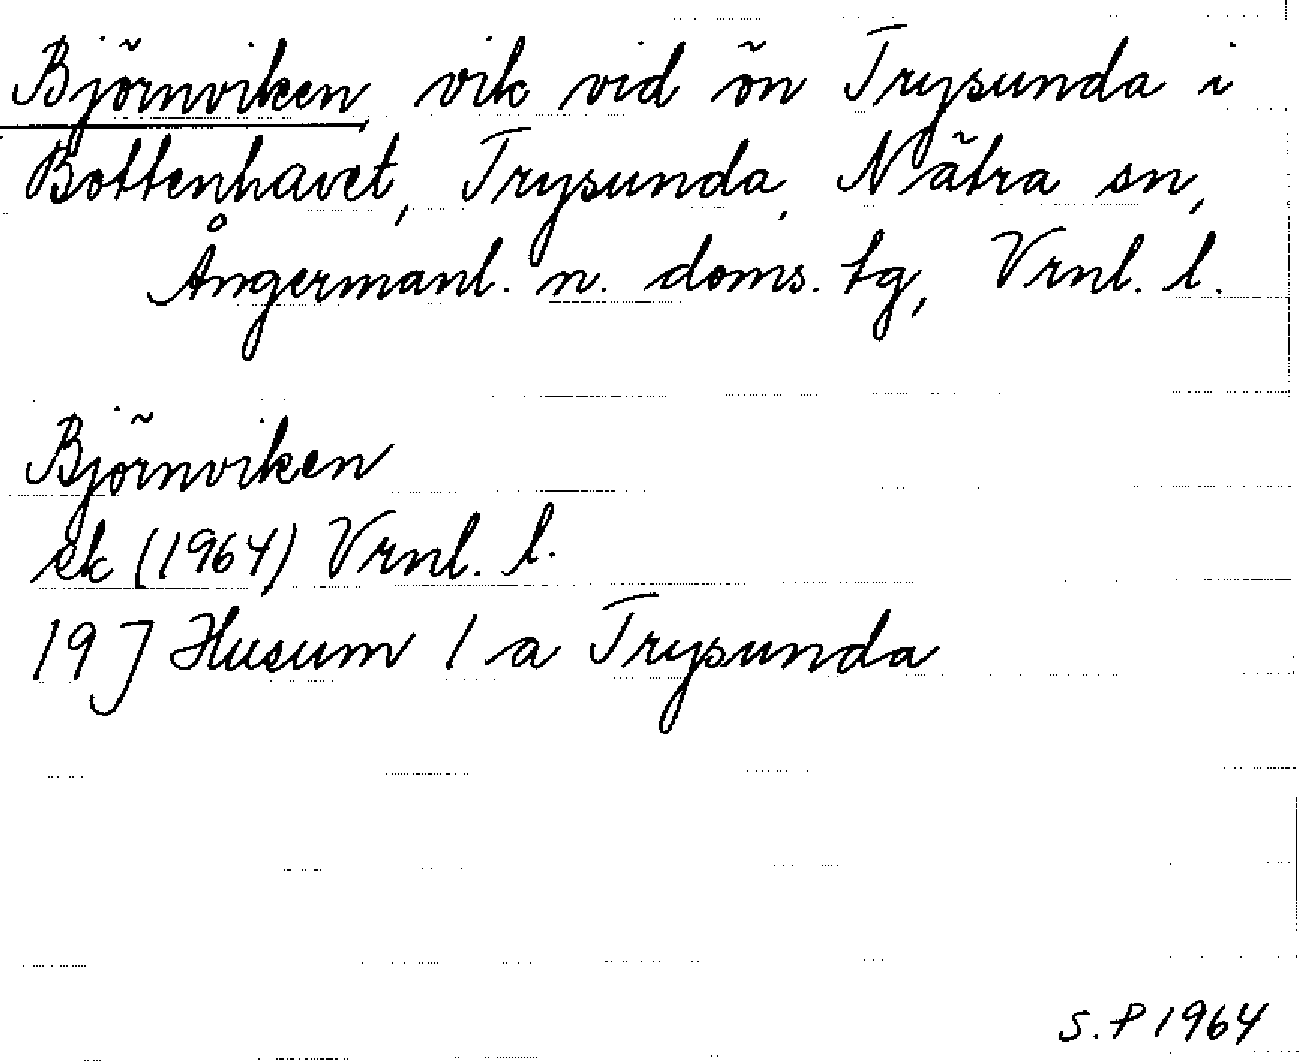 Björnviken vik vid ön Trysunda i
Bottenhavet, Trysunda, Nätra sn,
Ångermanl. n. doms. tg, Vrnl. l.
Björnviken
ek (1964) Vrnl. l.
19 J Husum 1 a Trysunda
S.P 1964